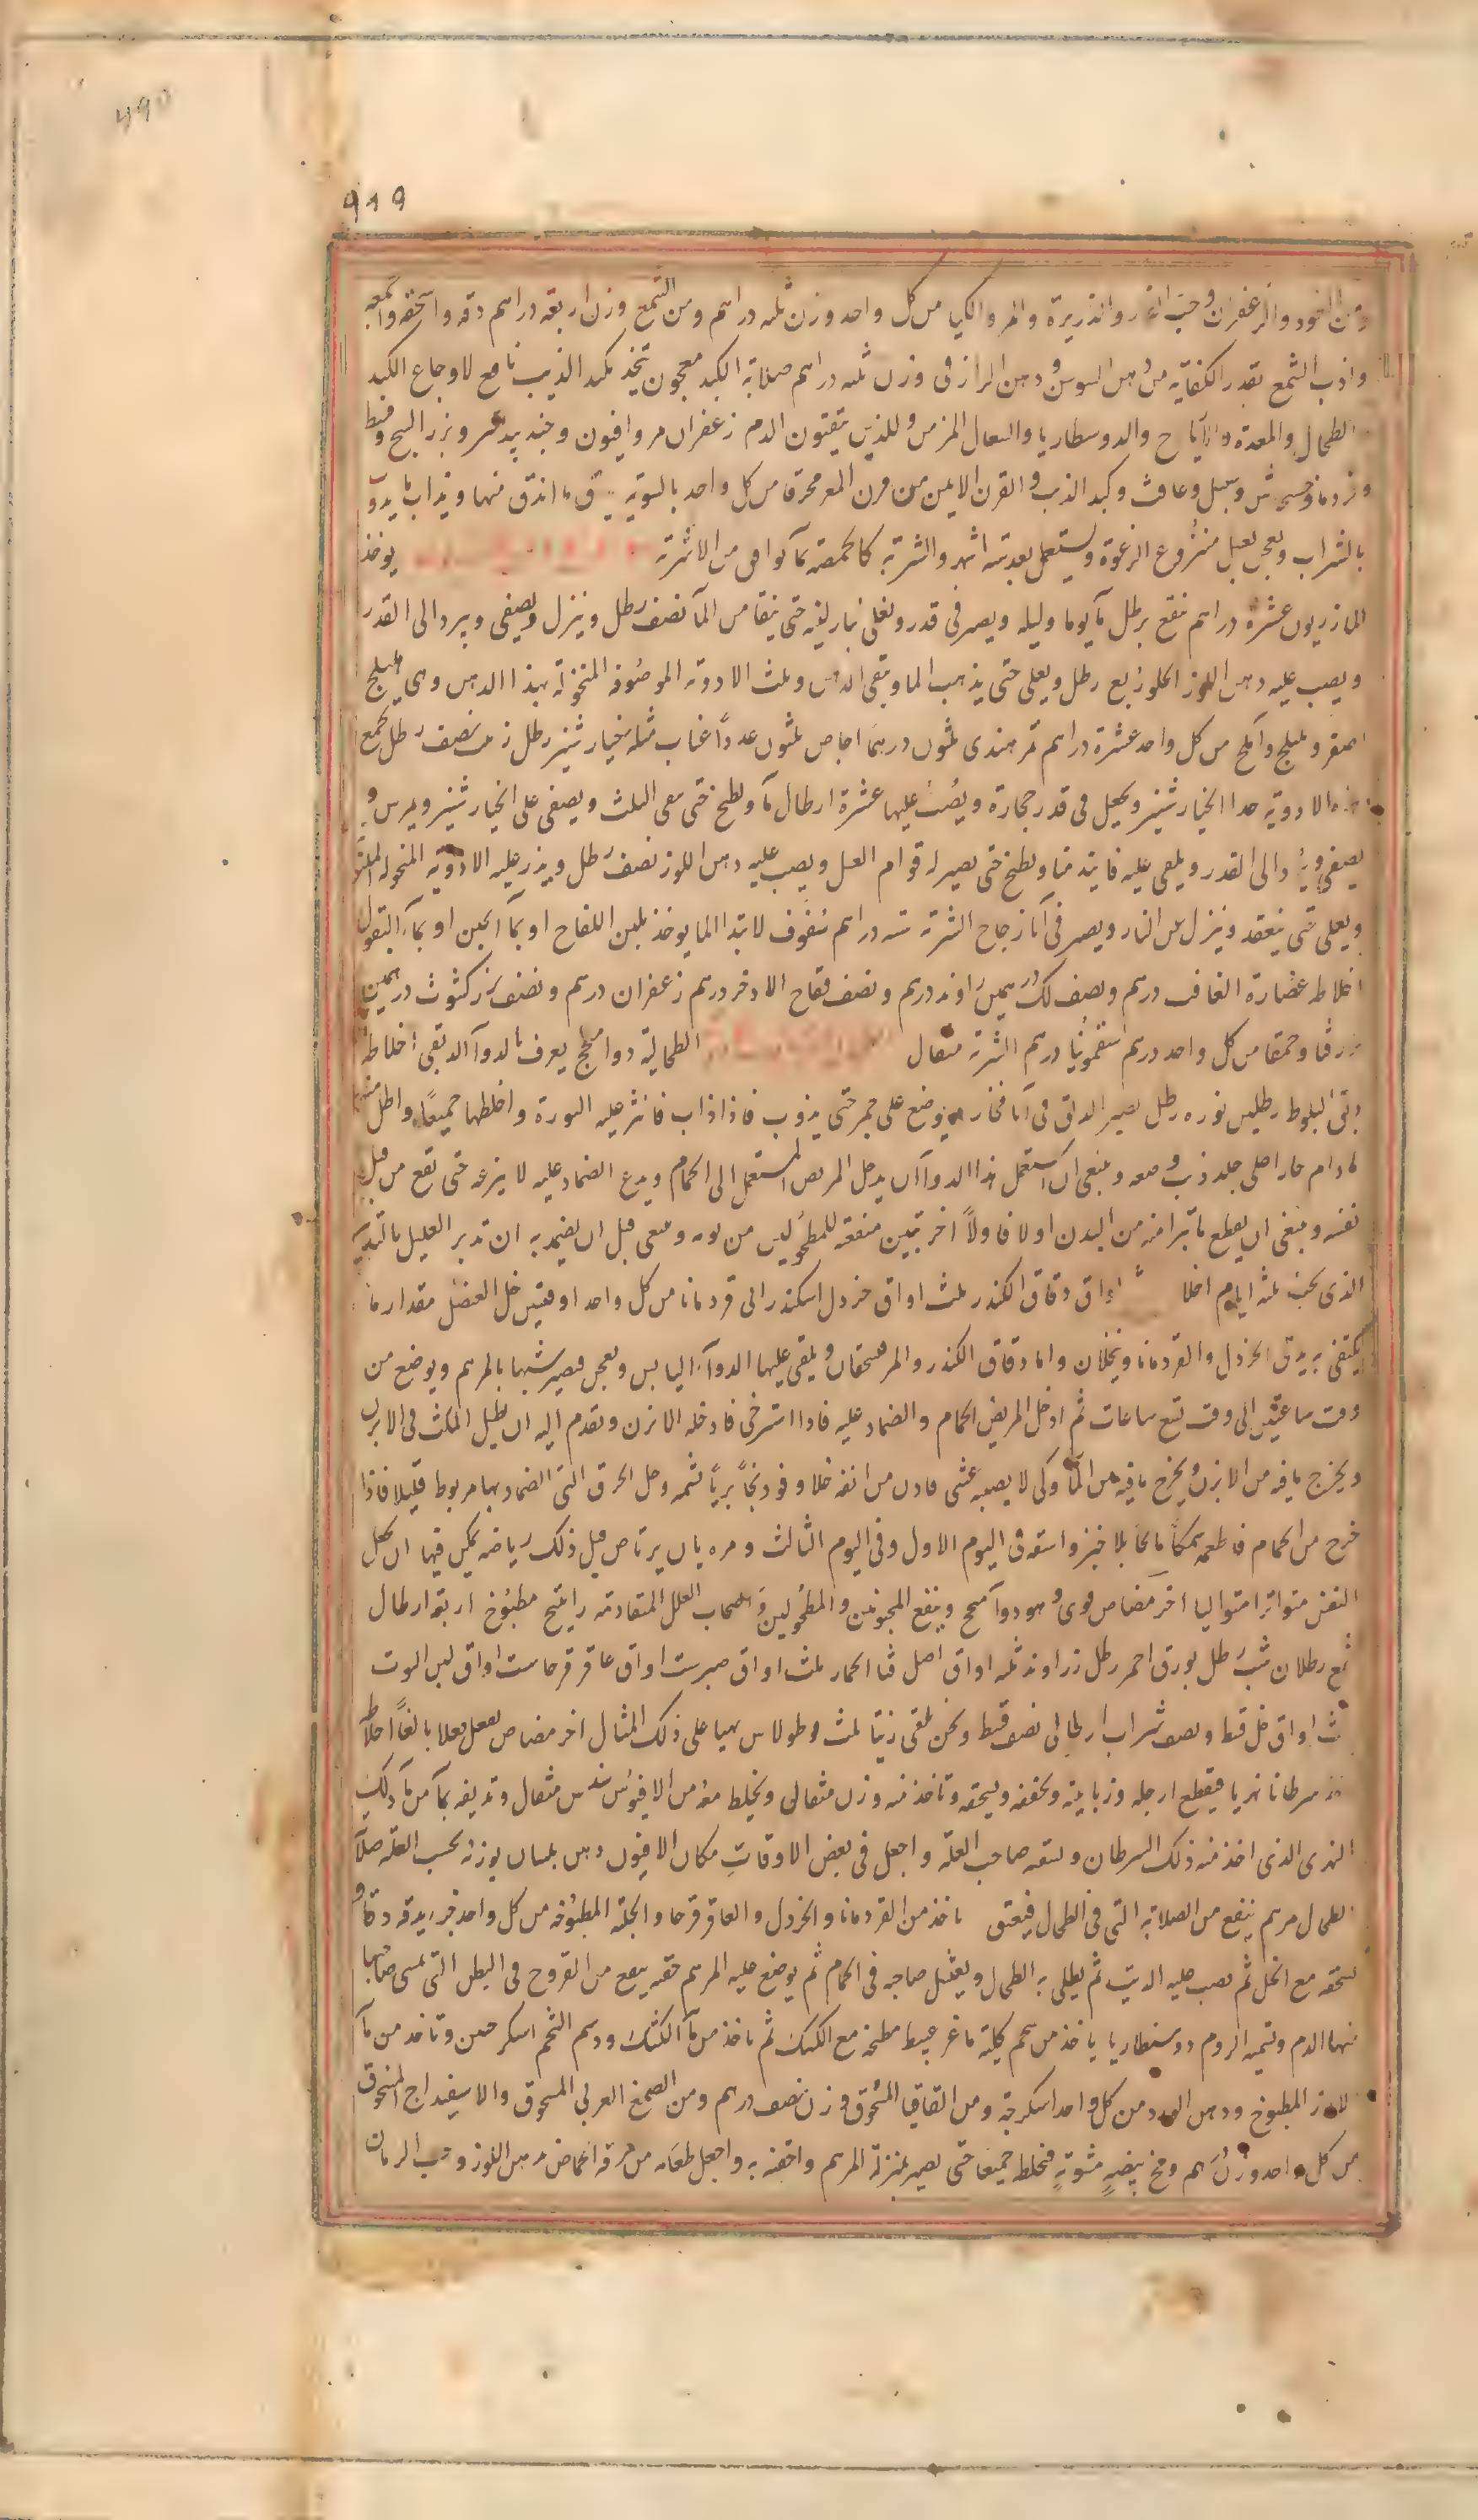 490
919
ومن العود والزعفران وحب الغار والذريرة والمر والكيا من كل واحد وزن ثلثه دراهم ومن الشمع وزن اربعة دراهم دقه واسحقه واجمعه
واذب الشمع بقدر الكفاية من دهن السوسن ودهن الرازقى وزن ثلثه دراهم صلابة الكبد معجون يتخذ بكبد الذيب نافع لاوجاع الكبد
الطحال والمعدة والدوسنطاريا والسعال المزمن وللذين يتقيون الدم زعفران مر وافيون وجندبيدستر وبزر البنج وقسط
وسنبل وغافث وكبد الذيب والقرن الايمن من قرن المعز محرقا من كل واحد بالسوية يدق ما اندق منها ويذاب ما يذوب
بالشراب ويعجن بعسل منزوع الرغوة ويستعمل بعد ستة اشهر والشربة كالحمصة بما يوافق من الاشربة يوخذ
المازريون عشرة دراهم ينقع برطل ما يوما وليله ويصير فى قدر ويغلى بنار لينه حتى يبقا من الما نصف رطل وينزل ويصفى ويرد الى القدر
ويصب عليه دهن اللوز الحلو ربع رطل ويغلى حتى يذهب الما ويبقى الدهن ويلت الادوية الموصوفة المنخولة بهذا الدهن وهى هليلج
اصفر وبليلج واملج من كل واحد عشرة دراهم تمر هندى ثلثون درهما اجاص ثلثون عددا عناب مثله خيار شنبر رطل نصف رطل يجمع
هذه الادوية خلا الخيار شنبر ويجعل فى قدر حجارة ويصب عليها عشرة ارطال ما ويطبخ حتى يبقى الثلث ويصفى على الخيار شنبر ويمرس و
يصفى ويرد الى القدر ويلقى عليه فانيذ منا ويطبخ حتى يصير له قوام العسل ويصب عليه دهن اللوز نصف رطل ويذر عليه الادوية المنخولة
ويغلى حتى ينعقد وينزل عن النار ويصير فى انا زجاج الشربة ستة دراهم سفوف لابتدا الما يوخذ بلبن اللقاح او بما الجبن او بما البقول
اخلاطه عصارة الغافث درهم ونصف لك درهمين راوند درهم ونصف فقاح الاذخر درهم زعفران درهم ونصف بزر كشوث درهمين
من كل واحد درهم سقمونيا درهم الشربة مثقال الطحالية دوا منجح يعرف بالدوا الدبقى اخلاطه
دبق البلوط رطلين نوره رطل يصير الدبق فى انا فخار ويوضع على جمر حتى يذوب فاذا ذاب فانثر عليه النورة واخلطها جميعا واطل منه
ما دام حارا على جلد ذيب وضعه وينبغى ان استعمل هذا الدوا ان يدخل المريض المستعمل الى الحمام ويدع الضماد عليه لا ينزعه حتى يقع من قبل
نفسه وينبغى ان يقطع ما تبرا منه من البدن اولا فاولا اخر تبين منفعته للمطحولين من يومه وينبغى قبل ان يضمد به ان تدبر العليل بالتدبير
الذى يجب ثلثه ايام اخلا اواق دقاق الكندر ثلث اواق خردل اسكندرانى قردمانا من كل واحد اوقيتين خل العنصل مقدار ما
يكتفى به يدق الخردل والقردمانا وينخلان واما دقاق الكندر والمر فيسحقان ويلقى عليها الدوا اليابس ويعجن فيصير شبيها بالمرهم ويوضع من
وقت ساعتين الى وقت تسع ساعات ثم ادخل المريض الحمام والضماد عليه فاذا استرخى فادخله الابزن وتقدم اليه ان يطيل المكث فى الابزن
ويخرج ما فيه من الابزن ويخرج ما فيه من الما وكى لا يصيبه غشى فادن من انفه خلا وفودنجا بريا يشمه وحل الخرق التى الضماد بها مربوط قليلا فاذا
خرج من الحمام فاطعمه سمكا مالحا بلا خبز واسقه فى اليوم الاول وفى اليوم الثالث ومره بان يرتاض قبل ذلك رياضه يمكن فيها ان يكل
النفس متواترا متواليا اخر مضاض قوى وهو دوا منجح وينفع المجنوبين والمطحولين واصحاب العلل المتقادمه راتينج مطبوخ اربعة ارطال
شمع رطلان شب رطل بورق احمر رطل زراوند ثلثه اواق اصل قثا الحمار ثلث اواق صبر ست اواق عاقر قرحا ست اواق لبن التوت
ثلث اواق خل قسط ونصف شراب ايطالى نصف قسط ونحن نلقى زيتا ثلث وطولاس يهيا على ذلك المثال اخر مضاض يفعل فعلا بالغا اخلاطه
خذ سرطانا نهريا فيقطع ارجله وزبانيته وتجففه وتسحقه وتاخذ منه وزن مثقال وتخلط معه من الافيون سدس مثقال وتديفه بما من ما ذلك
النهرى الذى اخذ منه ذلك السرطان وتسقيه صاحب العلة واجعل فى بعض الاوقات مكان الافيون دهن بلسان بوزنه بحسب العلة صلابة
الطحال مرهم ينفع من الصلابة التى فى الطحال فيعتق ياخذ من القردمانا والخردل والعاقرقرحا والحلبة المطبوخه من كل واحد جزء يدقه دقا و
يسحقه مع الخل ثم يصب عليه الزيت ثم يطلى به الطحال ويغسل صاحبه فى الحمام ثم يوضع عليه المرهم حقنه ينفع من القروح فى البطن التى يمشى صاحبها
منها الدم وتسميه الروم دوسنطاريا ياخذ من شحم كلية ماعز عبيط مطبخه مع الكشك ثم ياخذ من ما الكشك ودسم الشحم اسكرجتين وتاخذ من ما
الارز المطبوخ ودهن الورد من كل واحد اسكرجة ومن القاقيا المسحوق وزن نصف درهم ومن الصمغ العربى المسحوق والاسفيداج المسحوق
من كل واحد وزن درهم ومخ بيضة مشوية فتخلط جميعا حتى يصير بمنزلة المرهم واحقنه به واجعل طعامه من مرقه الحماض بدهن اللوز وحب الرمان